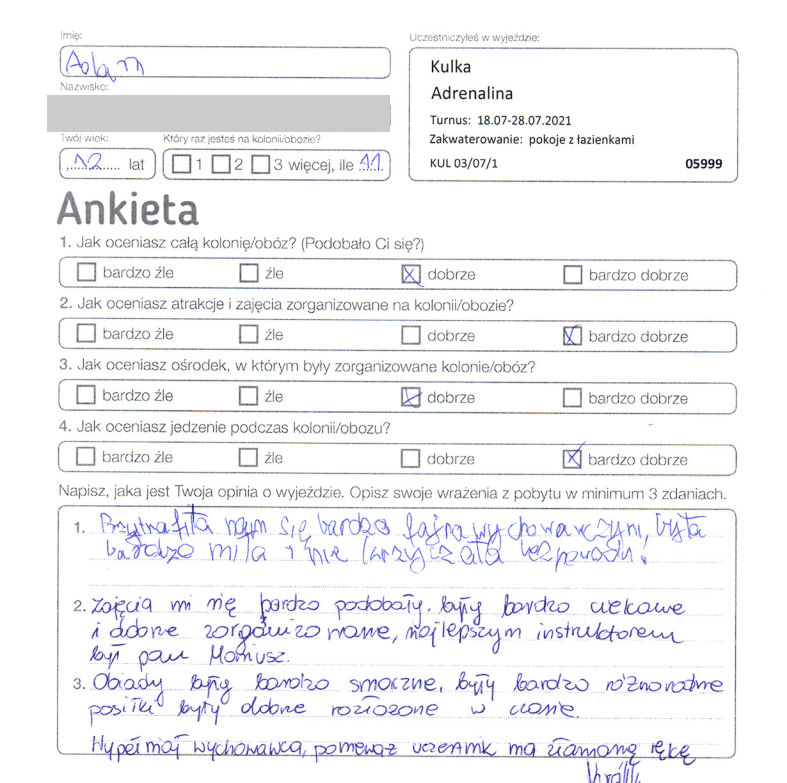 Imię:
Adam
Nazwisko:
Twój wiek:
12 lat
Który raz jesteś na kolonii/obozie?
1 2 3 więcej, ile 11
Uczestniczyłeś w wyjeździe:
Kulka
Adrenalina
Turnus: 18.07-28.07.2021
Zakwaterowanie: pokoje z łazienkami
KUL 03/07/1 05999
Ankieta
1. Jak oceniasz całą kolonię/obóz? (Podobało Ci się?)
bardzo źle źle dobrze bardzo dobrze
2. Jak oceniasz atrakcje i zajęcia zorganizowane na kolonii/obozie?
bardzo źle źle dobrze bardzo dobrze
3. Jak oceniasz ośrodek, w którym były zorganizowane kolonie/obóz?
bardzo źle źle dobrze bardzo dobrze
4. Jak oceniasz jedzenie podczas kolonii/obozu?
bardzo źle źle dobrze bardzo dobrze
Napisz, jaka jest Twoja opinia o wyjeździe. Opisz swoje wrażenia z pobytu w minimum 3 zdaniach.
1. się bardzo fajna wychowawczyni, była
bardzo miła i nie krzyczała bez powodu.
2. Zajęcia mi się bardzo podobały. były bardzo ciekawe
i dobrze zorganizowane, najlepszym instruktorem
był pan Mariusz.
3. Obiady były bardzo smaczne, były bardzo różnorodne
posiłki były dobrze rozłożone w czasie.
Wypełniał wychowawca, ponieważ uczestnik ma złamaną rękę